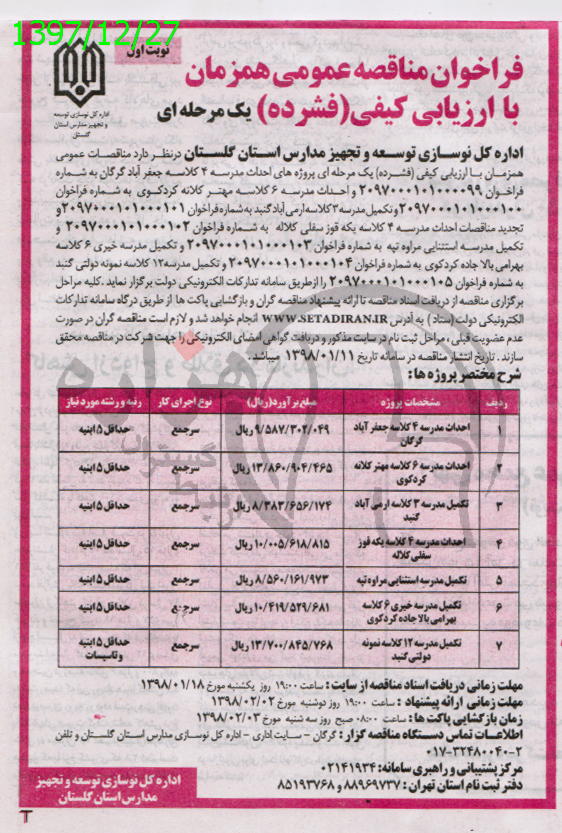 1397/12/27
نوبت اول
فراخوان مناقصه عمومی همزمان
با ارزیابی کیفی(فشرده) یک مرحله ای
اداره کل نوسازی توسعه
و تجهیز مدارس استان
گلستان
اداره کل نوسازی توسعه و تجهیز مدارس استان گلستان درنظر دارد مناقصات عمومی
همزمان با ارزیابی کیفی (فشرده) یک مرحله ای پروژه های احداث مدرسه ۴ کلاسه جعفر آباد گرگان به شماره
فراخوان ۲۰۹۷۰۰۰۱۰۱۰۰۰۰۹۹ و احداث مدرسه ۶ کلاسه مهتر کلانه کردکوی به شماره فراخوان
۲۰۹۷۰۰۰۱۰۱۰۰۰۱۰۰ و تکمیل مدرسه ۳ کلاسه ارمی آباد گنبد به شماره فراخوان ۲۰۹۷۰۰۰۱۰۱۰۰۰۱۰۱ و
تجدید مناقصات احداث مدرسه ۴ کلاسه یکه قوز سفلی کلاله به شماره فراخوان ۲۰۹۷۰۰۰۱۰۱۰۰۰۱۰۲ و
تکمیل مدرسه استثنایی مراوه تپه به شماره فراخوان ۲۰۹۷۰۰۰۱۰۱۰۰۰۱۰۳ و تکمیل مدرسه خیری ۶ کلاسه
بهرامی بالا جاده کردکوی به شماره فراخوان ۲۰۹۷۰۰۰۱۰۱۰۰۰۱۰۴ و تکمیل مدرسه ۱۲ کلاسه نمونه دولتی گنبد
به شماره فراخوان ۲۰۹۷۰۰۰۱۰۱۰۰۰۱۰۵ را ازطریق سامانه تدارکات الکترونیکی دولت برگزار نماید .کلیه مراحل
برگزاری مناقصه از دریافت اسناد مناقصه تا ارائه پیشنهاد مناقصه گران و بازگشایی پاکت ها از طریق درگاه سامانه تدارکات
الکترونیکی دولت (ستاد ) به آدرس WWW.SETADIRAN.IR انجام خواهد شد و لازم است مناقصه گران در صورت
عدم عضویت قبلی ، مراحل ثبت نام در سایت مذکور و دریافت گواهی امضای الکترونیکی را جهت شرکت در مناقصه محقق
سازند . تاریخ انتشار مناقصه در سامانه تاریخ ۱۳۹۸/۰۱/۱۱ میباشد .
شرح مختصر پروژه ها :
ردیف مشخصات پروژه مبلغ برآورد(ریال) نوع اجرای کار رتبه و رشته مورد نیاز
۱ احداث مدرسه ۴ کلاسه جعفر آباد ۹/۵۸۷/۳۰۲/۰۴۹ ریال سرجمع حداقل ۵ ابنیه
گرگان
۲ احداث مدرسه ۶ کلاسه مهتر کلانه ۱۳/۸۶۰/۹۰۴/۴۶۵ ریال سرجمع حداقل ۵ ابنیه
کردکوی
۳ تکمیل مدرسه ۳ کلاسه ارمی آباد ۸/۳۸۳/۶۵۶/۱۷۴ ریال سرجمع حداقل ۵ ابنیه
گنبد
۴ احداث مدرسه ۴ کلاسه یکه قوز ۱۰/۰۰۵/۶۱۸/۸۱۵ ریال سرجمع حداقل ۵ ابنیه
سفلی کلاله
۵ تکمیل مدرسه استثنایی مراوه تپه ۸/۵۶۰/۱۶۱/۹۷۳ ریال سرجمع حداقل ۵ ابنیه
۶ تکمیل مدرسه خیری ۶ کلاسه ۱۰/۴۱۹/۵۲۹/۶۸۱ ریال سرجمع حداقل ۵ ابنیه
بهرامی بالا جاده کردکوی
۷ تکمیل مدرسه ۱۲ کلاسه نمونه ۱۳/۷۰۰/۸۴۵/۷۶۸ ریال سرجمع حداقل ۵ ابنیه
دولتی گنبد وتاسیسات
مهلت زمانی دریافت اسناد مناقصه از سایت : ساعت ۱۹:۰۰ روز یکشنبه مورخ ۱۳۹۸/۰۱/۱۸
مهلت زمانی ارائه پیشنهاد : ساعت ۱۹:۰۰ روز دوشنبه مورخ ۱۳۹۸/۰۲/۰۲
زمان بازگشایی پاکت ها : ساعت ۰۸:۰۰ صبح روز سه شنبه مورخ ۱۳۹۸/۰۲/۰۳
اطلاعات تماس دستگاه مناقصه گزار : گرگان - سایت اداری - اداره کل نوسازی مدارس استان گلستان و تلفن
۰۱۷-۳۲۴۸۰۰۴۰-۲
مرکز پشتیبانی و راهبری سامانه: ۰۲۱۴۱۹۳۴
دفتر ثبت نام استان تهران : ۸۸۹۶۹۷۳۷ و ۸۵۱۹۳۷۶۸
اداره کل نوسازی توسعه و تجهیز
مدارس استان گلستان